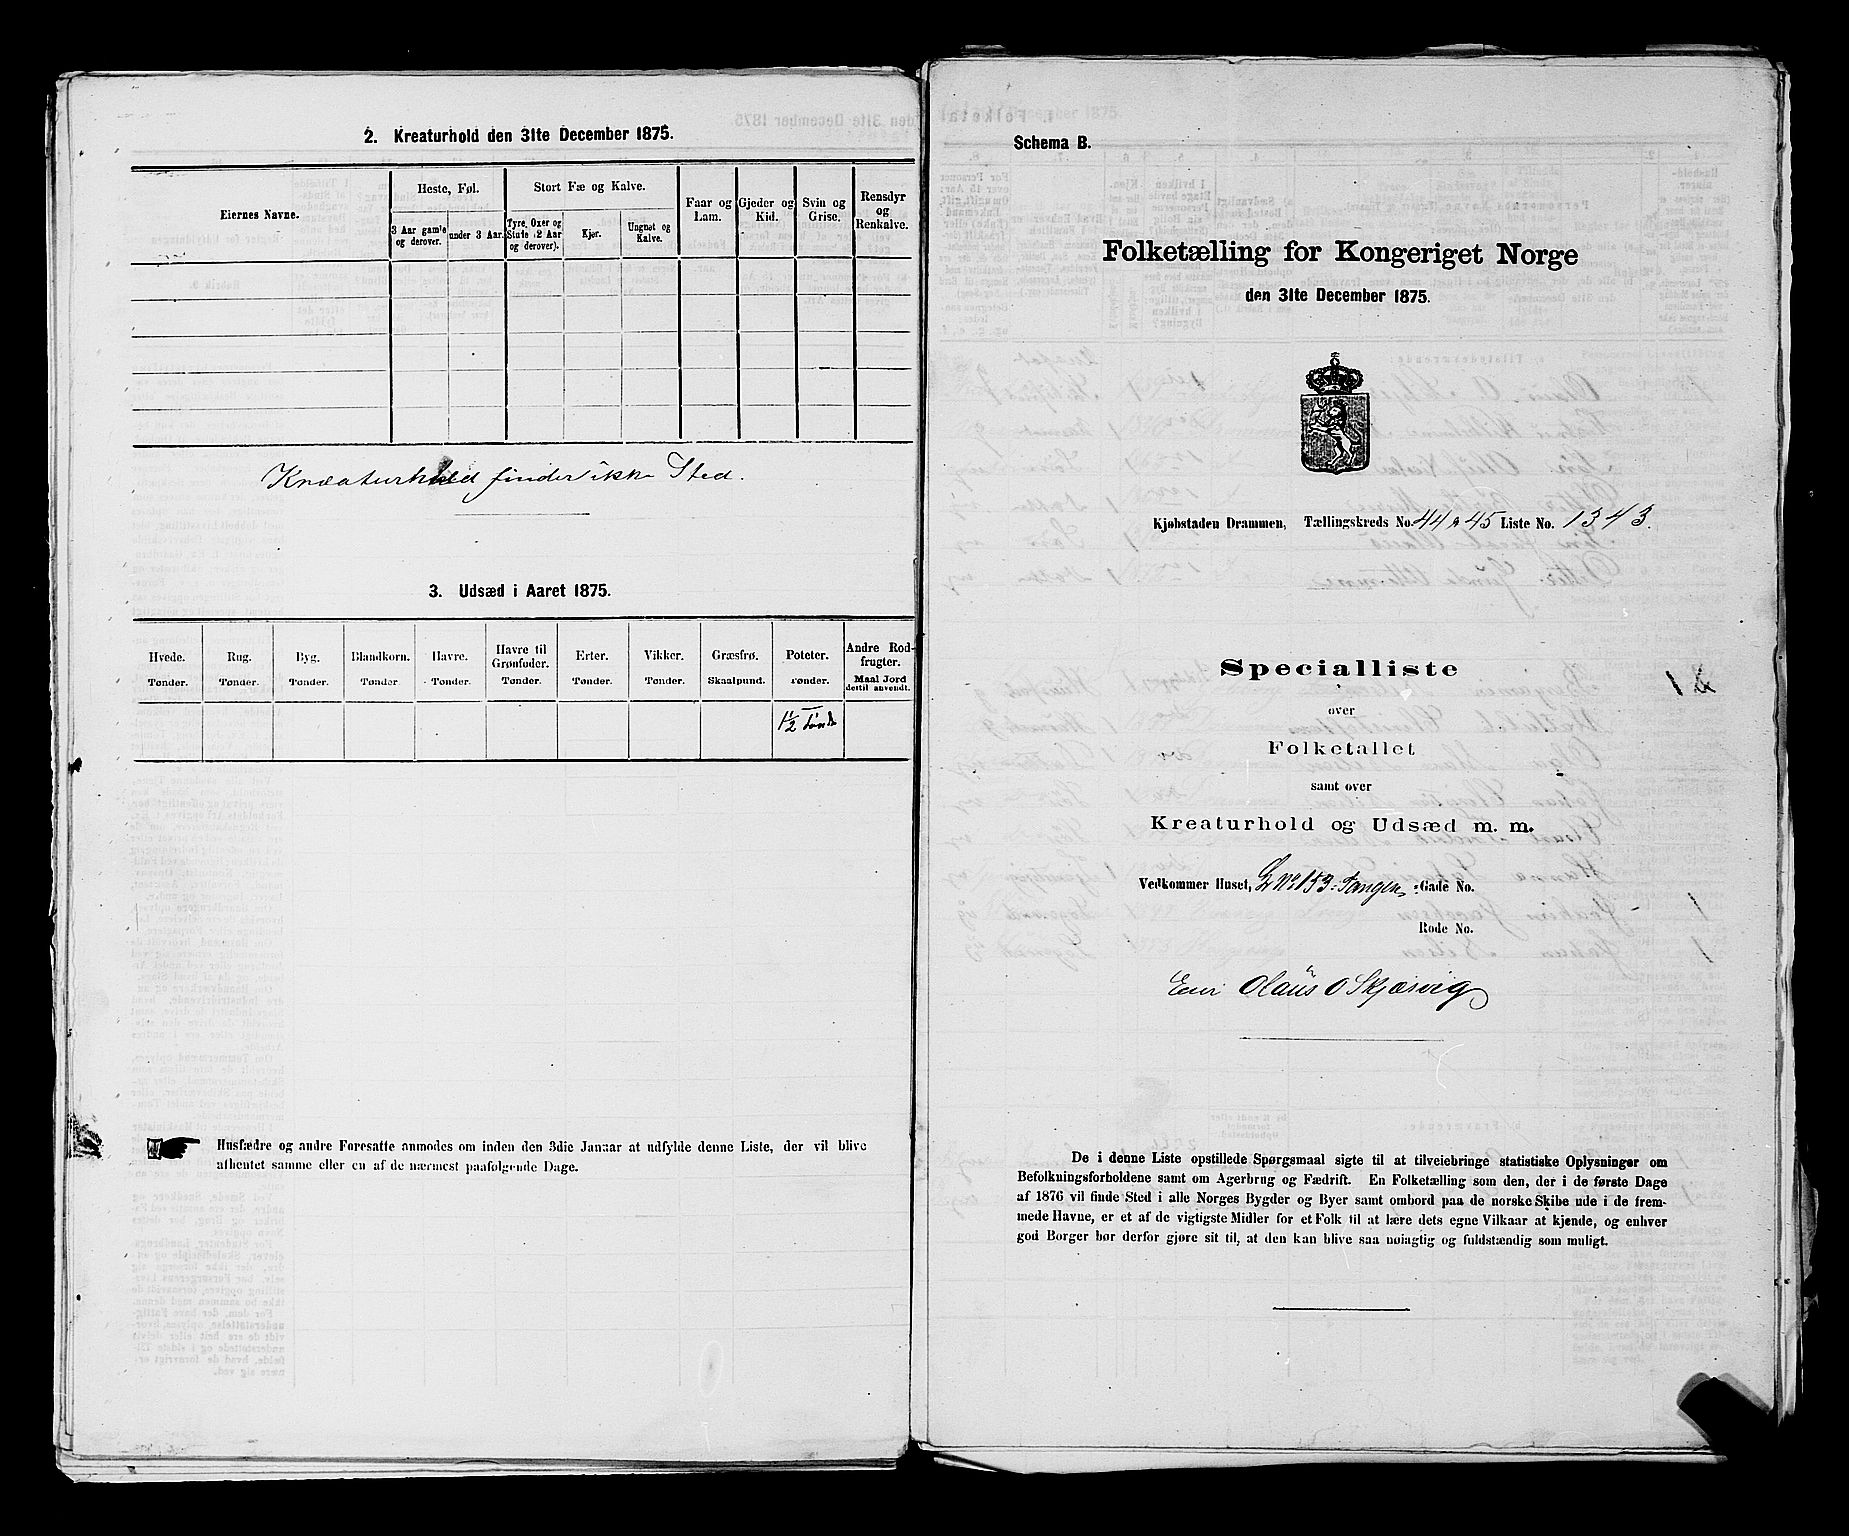 2. Kreaturhold den 31te December 1875.
Eiernes Navne.
Heste, Føl.
Stort Fæ og Kalve.
Faar og Lam.
Gjeder og Kid.
Svin og Grise.
Rensdyr og Renkalve.
3 Aar gamle og derover.
under 3 Aar.
Tyre, Oxer og Stute (2 Aar og derover).
Kjør.
Ungnøt og Kalve.
Kreaturhold finder ikke Sted.
3. Udsæd i Aaret 1875.
Hvede. Rug. Byg. Blandkorn. Havre. Havre til Grønfoder. Erter. Vikker. Græsfrø. Poteter. Andre Rodfrugter.
Tønder. Tønder. Tønder. Tønder. Tønder. Tønder. Tønder. Tønder. Skaalpund. Tønder. Maal Jord dertil anvendt.
1½ Tønde
Husfædre og andre Foresatte anmodes om inden den 3die Januar at udfylde denne Liste, der vil blive
afhentet samme eller en af de nærmest paafølgende Dage.
Schema B.
Folketælling for Kongeriget Norge
den 31te December 1875.
Kjøbstaden Drammen, Tællingskreds No. 44 & 45 Liste No. 1343.
Specialliste
over
Folketallet
samt over
Kreaturhold og Udsæd m. m.
Vedkommer Huset, L No 153 Tangen Gade No.
Rode No.
Eier Olaus O Skjærvig
De i denne Liste opstillede Spørgsmaal sigte til at tilveiebringe statistiske Oplysninger om
Befolkningsforholdene samt om Agerbrug og Fædrift. En Folketælling som den, der i de første Dage
af 1876 vil finde Sted i alle Norges Bygder og Byer samt ombord paa de norske Skibe ude i de frem-
mede Havne, er et af de vigtigste Midler for et Folk til at lære dets egne Vilkaar at kjende, og enhver
god Borger bør derfor gjøre sit til, at den kan blive saa nøiagtig og fuldstændig som muligt.